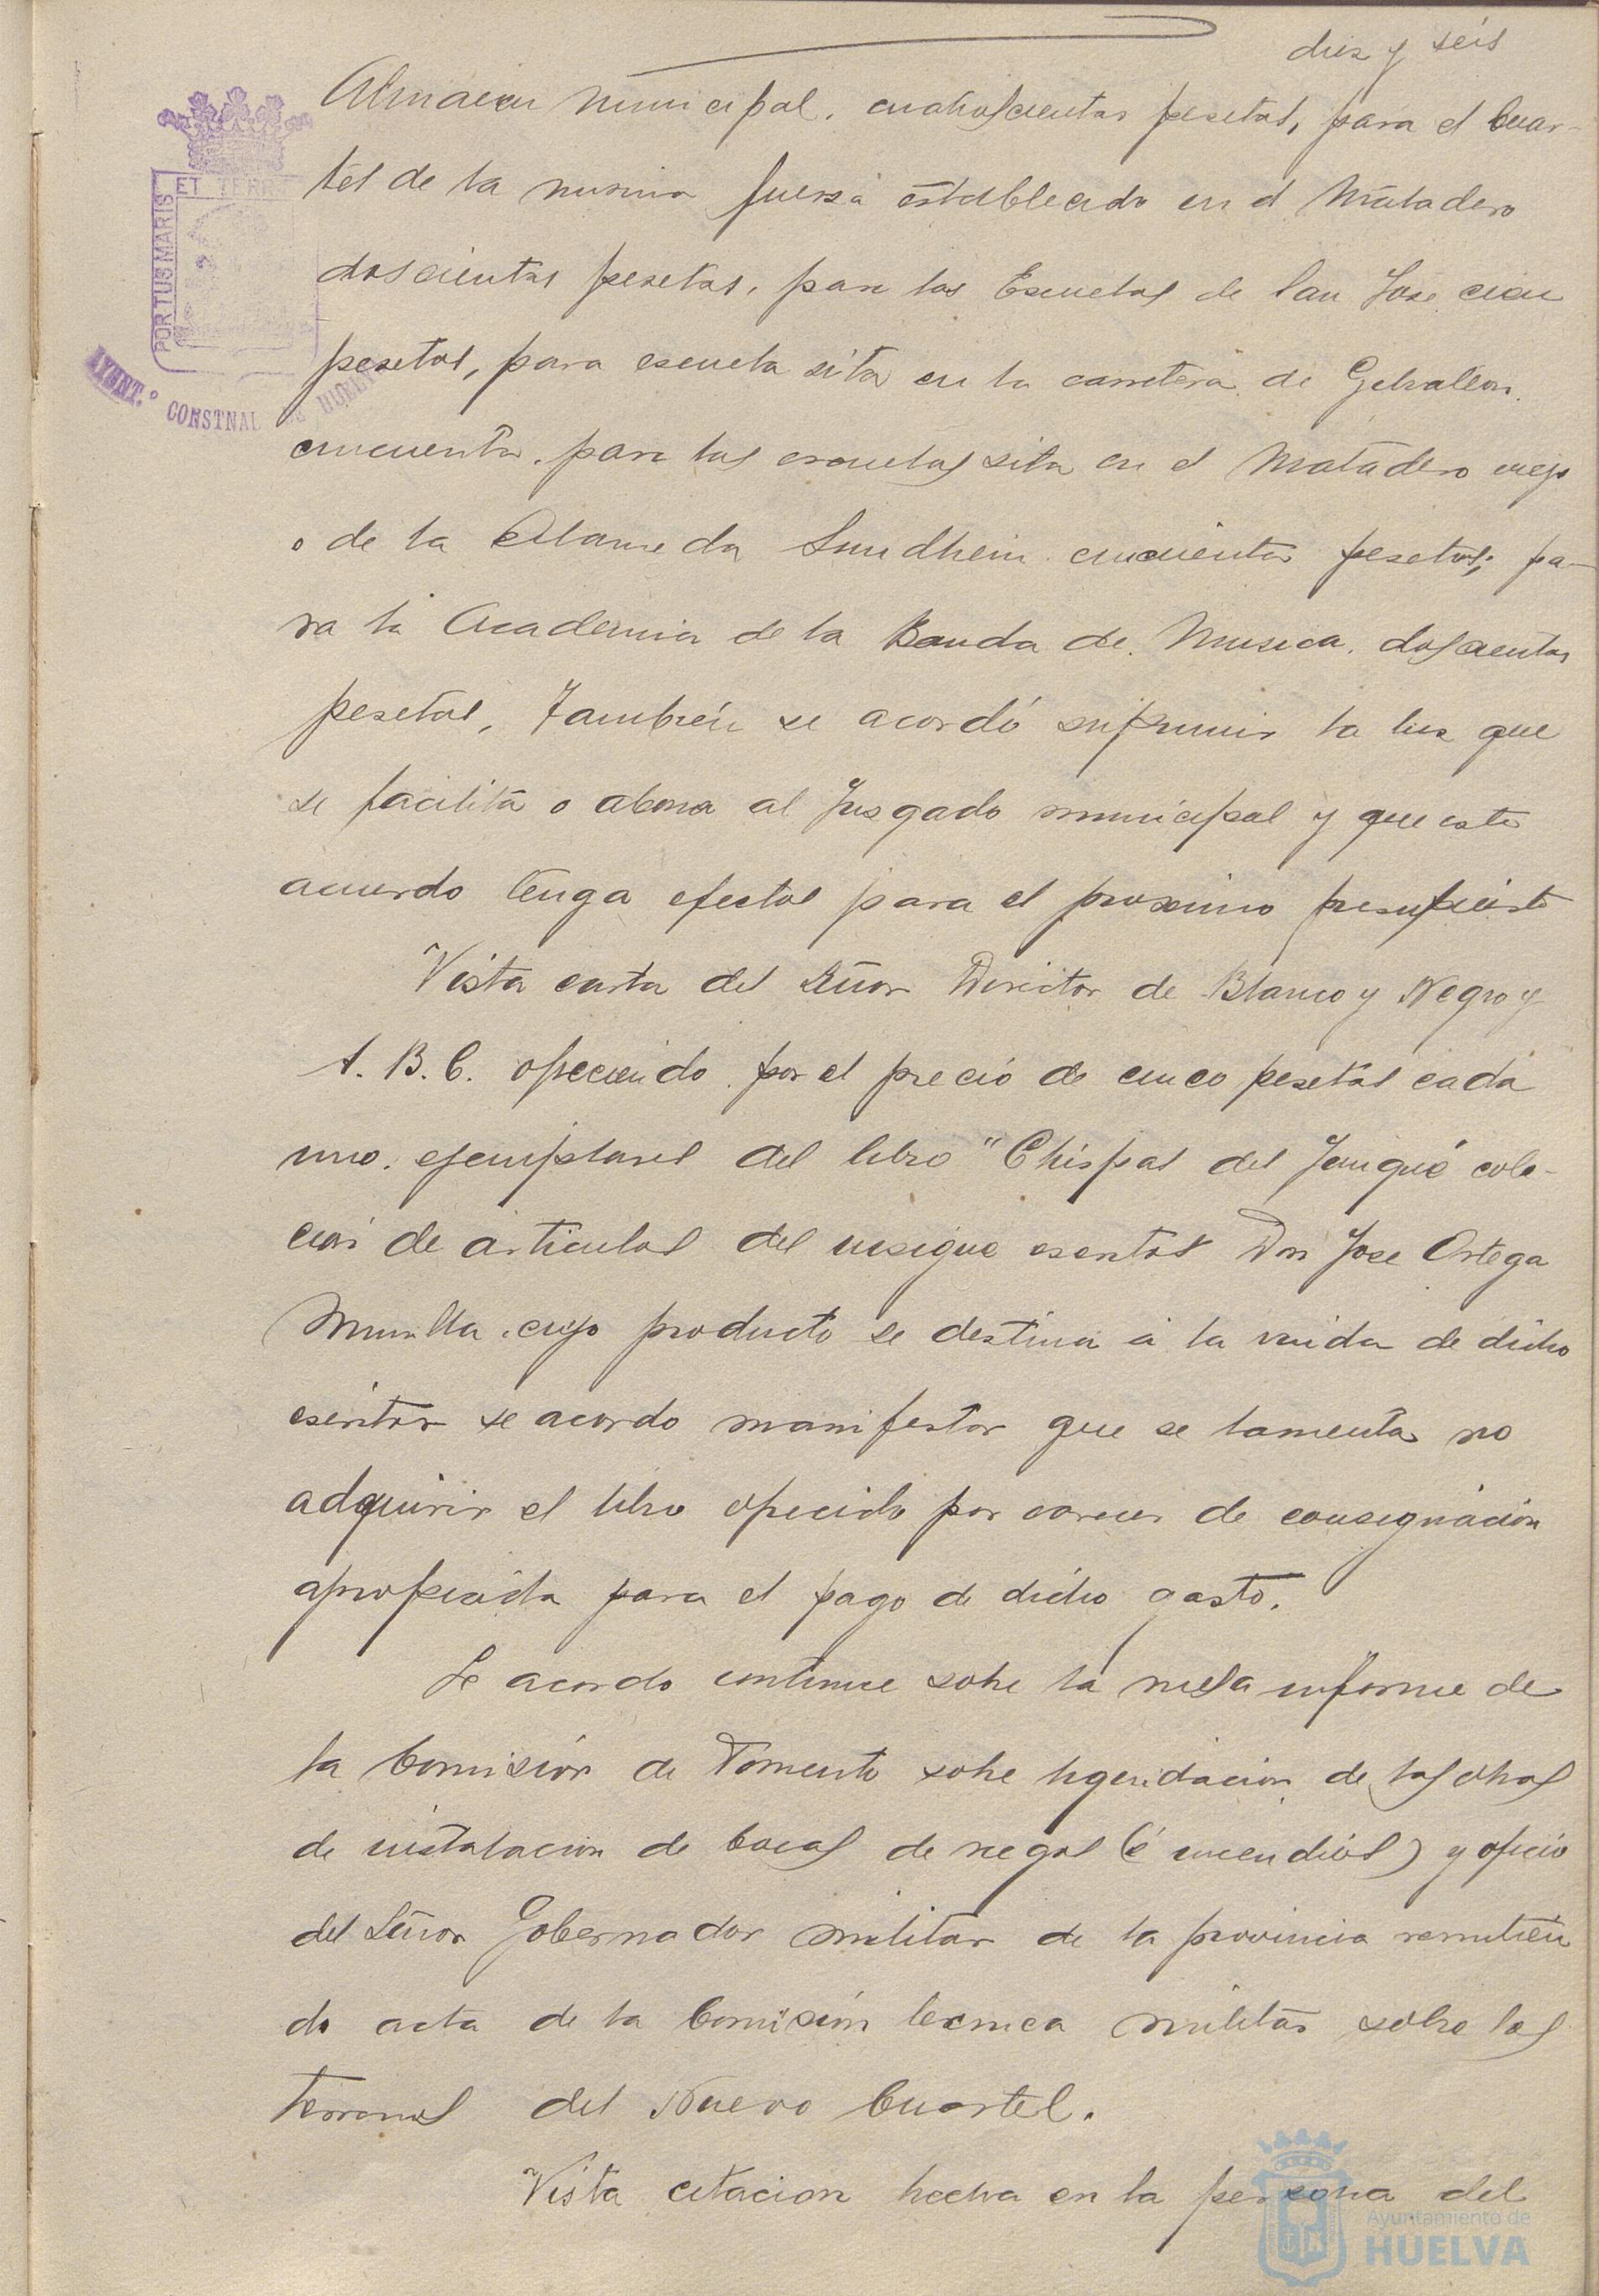 diez y seis
Almacen municipal, cuatroscientas pesetas, para el Cuar-
tel de la misma fuerza establecido en el Matadero
doscientas pesetas, para las Escuelas de San Jose cien
pesetas, para escuela sita en la carretera de Gibraleon
cincuenta, para las escuelas sita en el Matadero viejo
o de la Alameda Sundhein cincuenta pesetas; pa-
ra la Academia de la Banda de Musica, doscientas
pesetas, Tambien se acordó suprimir la luz que
se facilita o abona al Jusgado municipal y que este
acuerdo tenga efectos para el proximo presupuesto
Vista carta del Señor Director de Blanco y Negro y
A. B. C. ofreciendo por el precio de cinco pesetas cada
uno, ejemplares del libro "Chispas del Yunque" cole-
cion de articulos del insigne escritor Don Jose Ortega
Munilla, cuyo producto se destina á la viuda de dicho
escritor se acordo manifestar que se lamenta no
adquirir el libro ofrecido por carecer de consignación
apropiada para el pago de dicho gasto.
Se acordo continue sobre la mesa informe de
la Comisión de Fomento sobre liquidacion de las obras
de instalacion de bocas de riegos (é incendios) y oficio
del Señor Gobernador militar de la provincia remitien
do acta de la Comisión tecnica militar sobre los
terrenos del Nuevo Cuartel.
Vista citacion hecha en la persona del
PORTUS MARIS
ET TERR
AYUNT.º CONSTNAL DE HUELVA
Ayuntamiento de
HUELVA